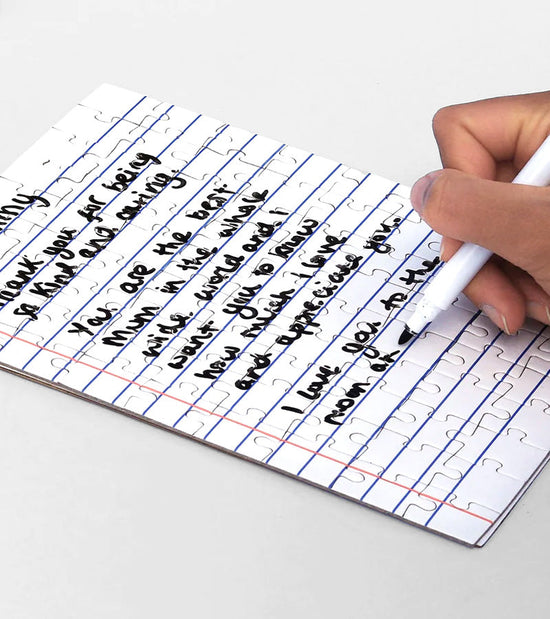 my
thank you for being
so kind and caring
You are the best
Mum in the whole
wide world and i
want you to know
how much i love
and appreciate you.
I love you to the
moon an